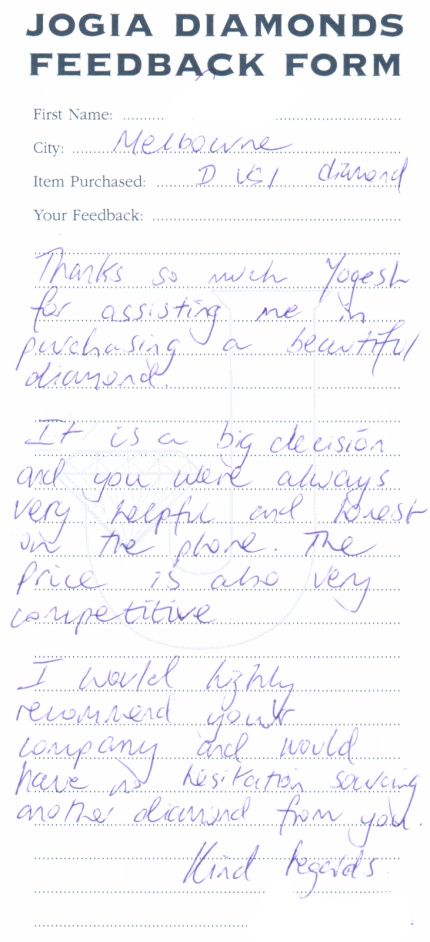 JOGIA DIAMONDS
FEEDBACK FORM
First Name:
City: Melbourne
Item Purchased: D VS1 diamond
Your Feedback:
Thanks so much Yogesh
for assisting me in
purchasing a beautiful
diamond.
It is a big decision
and you were always
very helpful and honest
on the phone. The
price is also very
competitive
I would highly
recommend your
company and would
have no hesitation sourcing
another diamond from you.
Kind regards